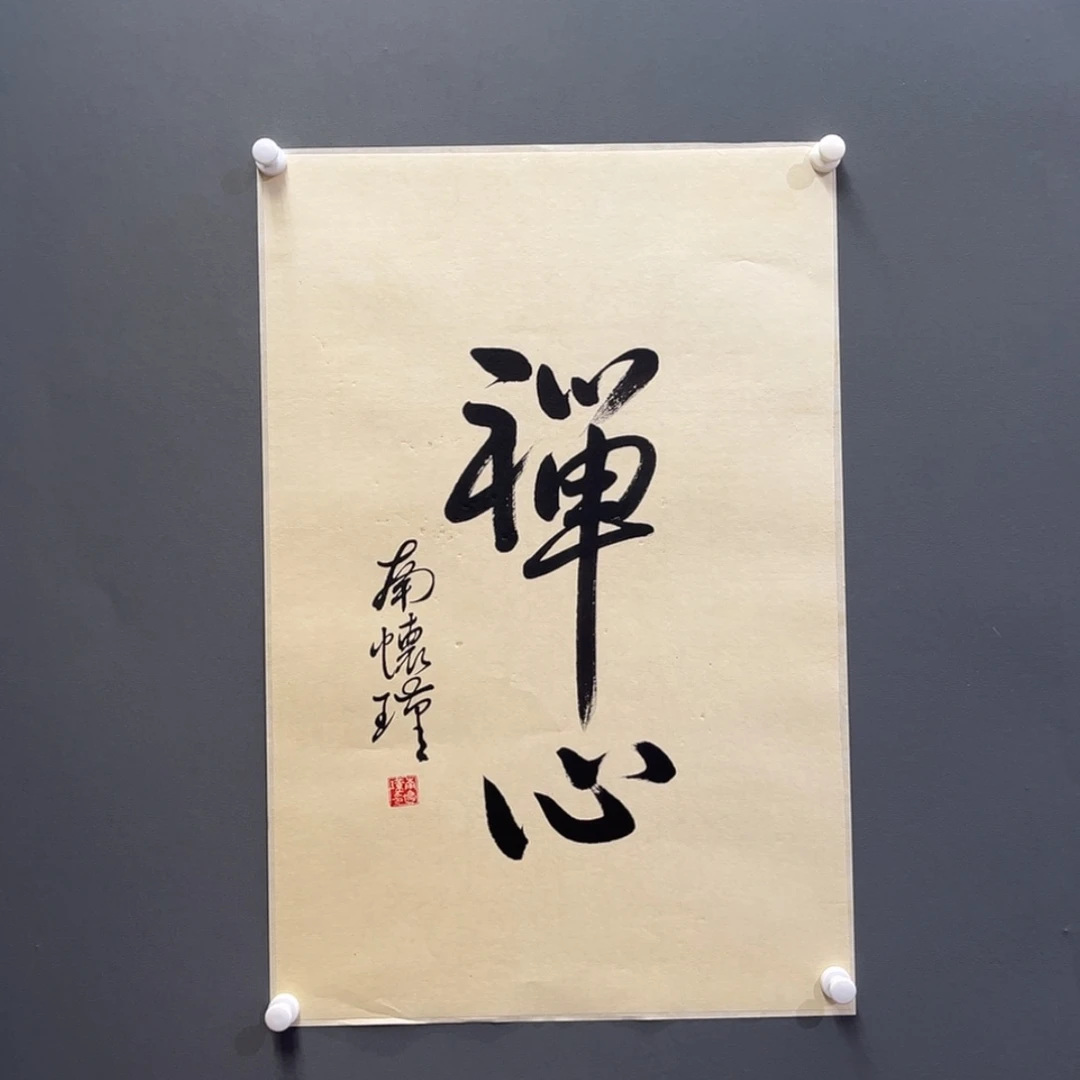 禪心
南懷瑾